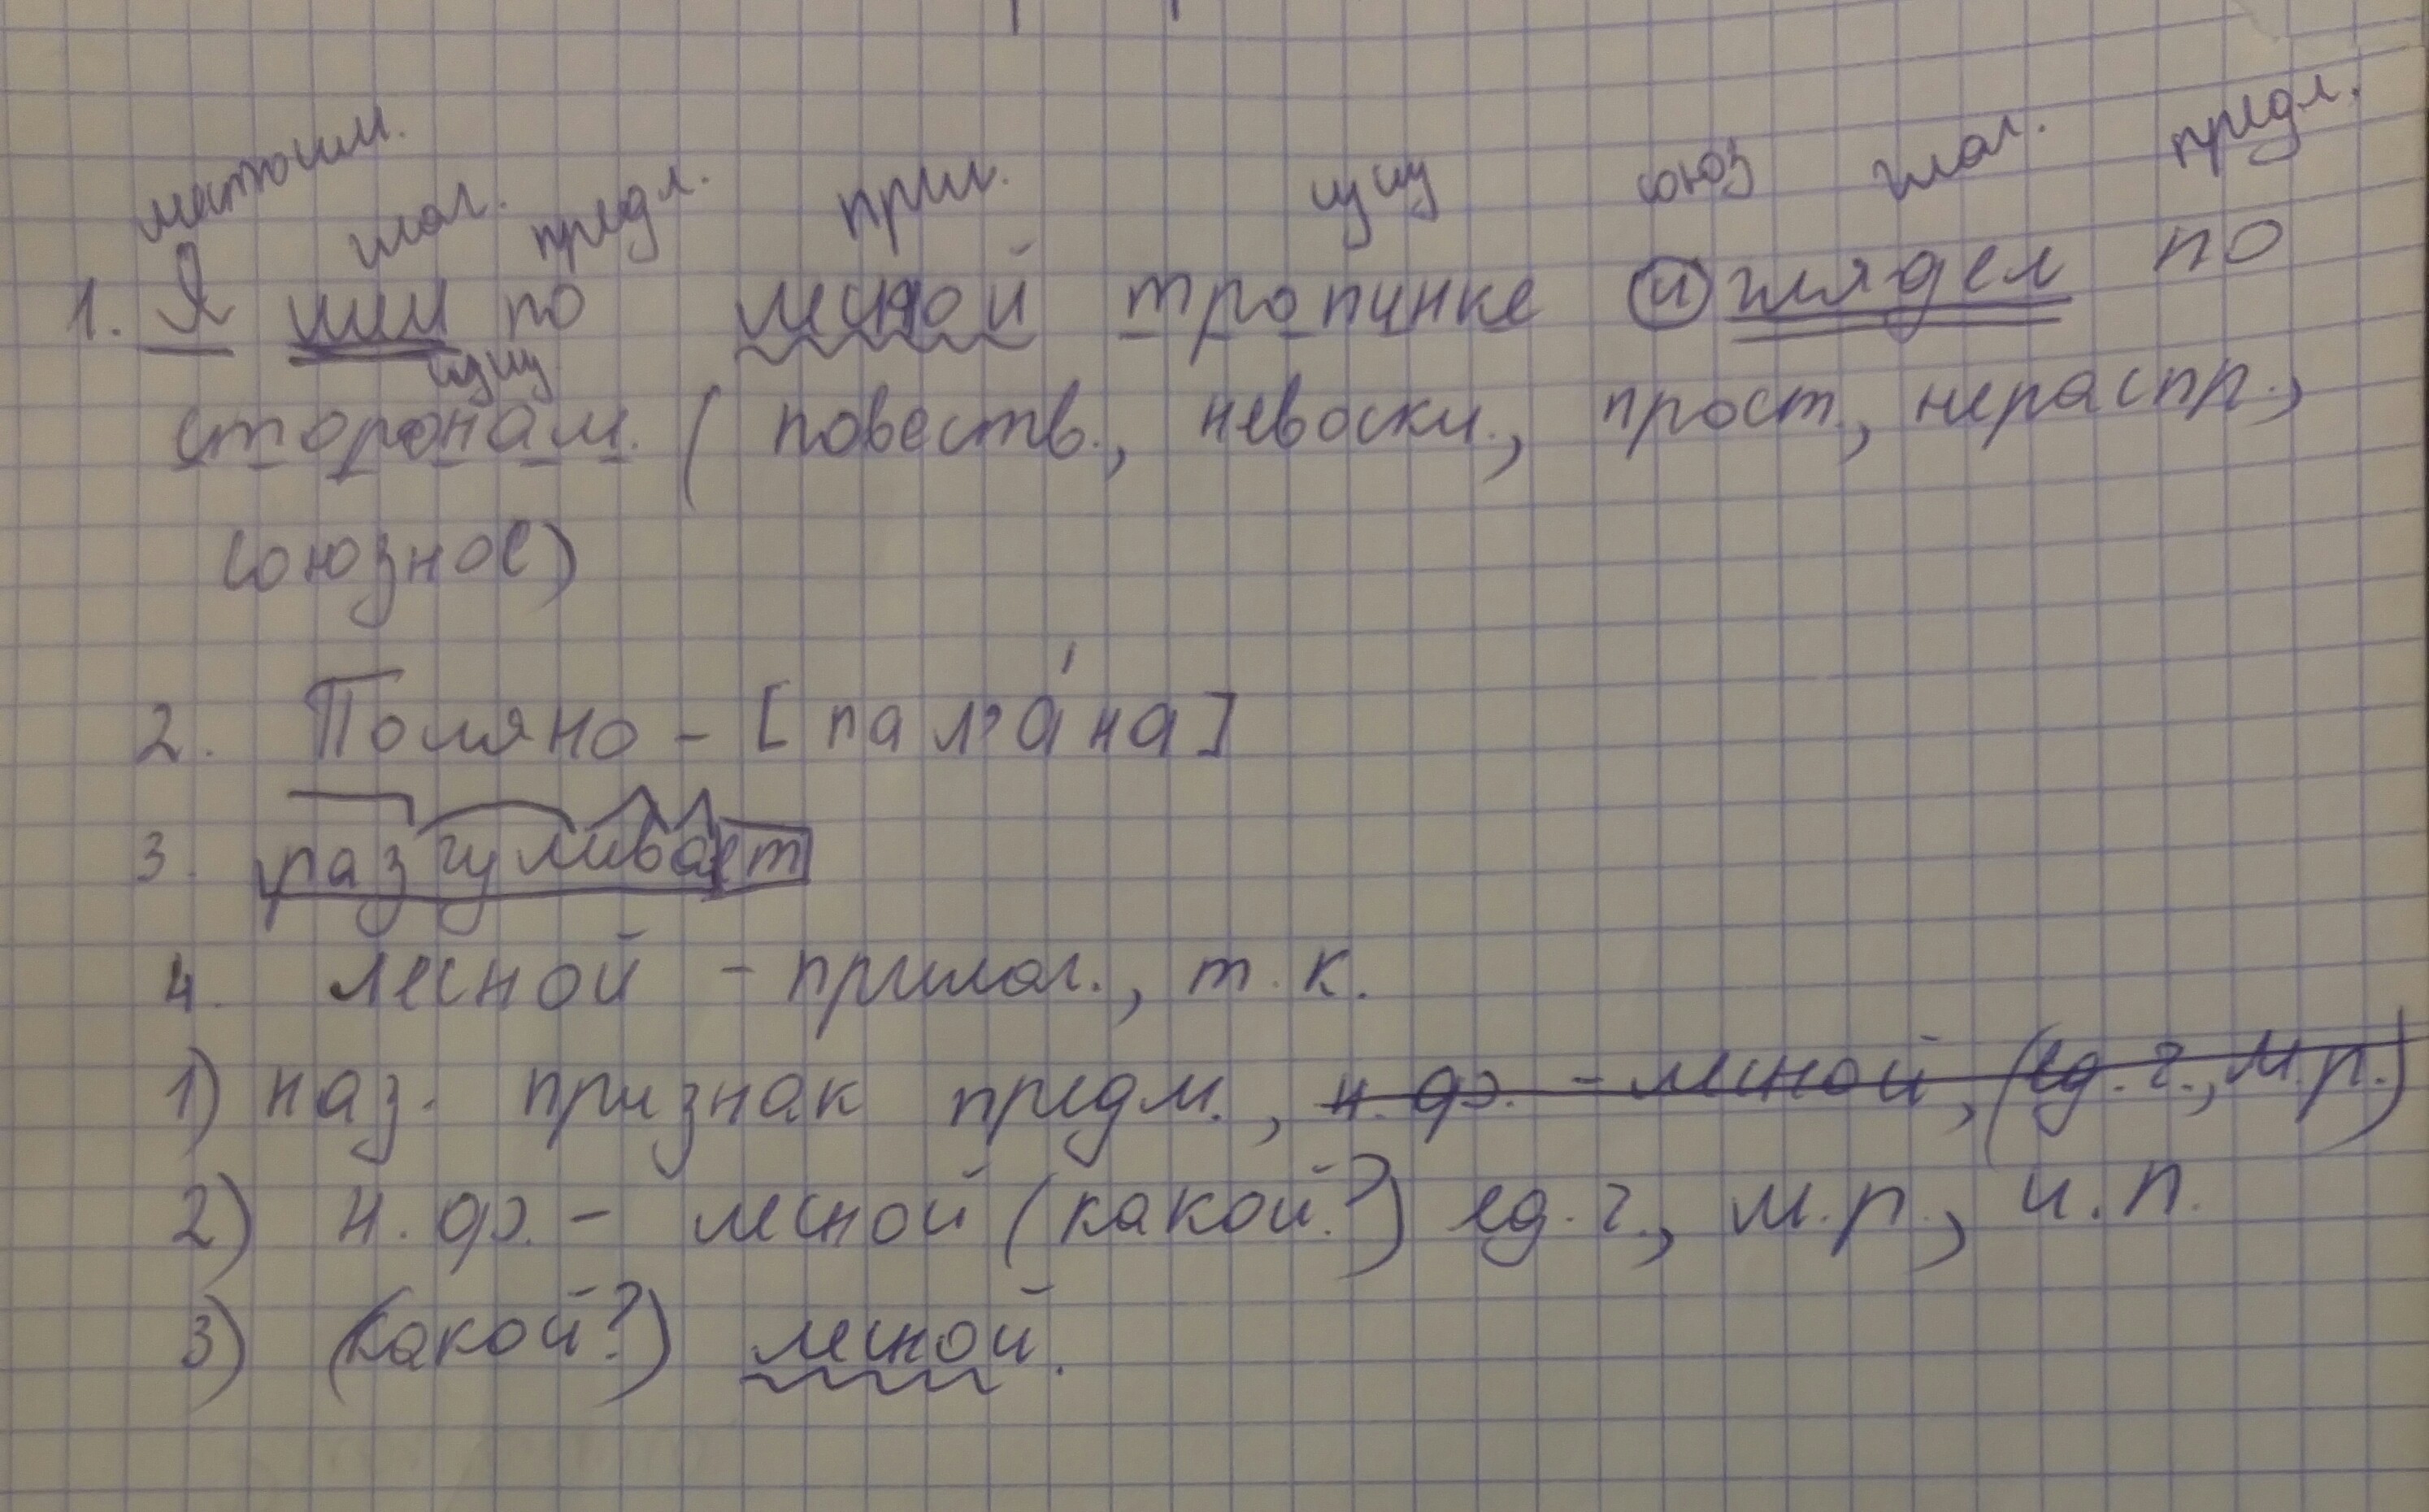 местоим. глаг. предл. прил. сущ союз глаг. предл.
1. Я шёл по лесной тропинке и глядел по
сущ
сторонам. (повеств., невоскл., прост., нераспр.,
союзное)
2. Поляно - [пал'а́на]
3. разгуливает
4. лесной - прилаг., т. к.
1) наз. признак предм., н. ф. - лесной, (ед. ч., м. р.)
2) н. ф. - лесной (какой?) ед. ч., м. р., и. п.
3) (какой?) лесной.